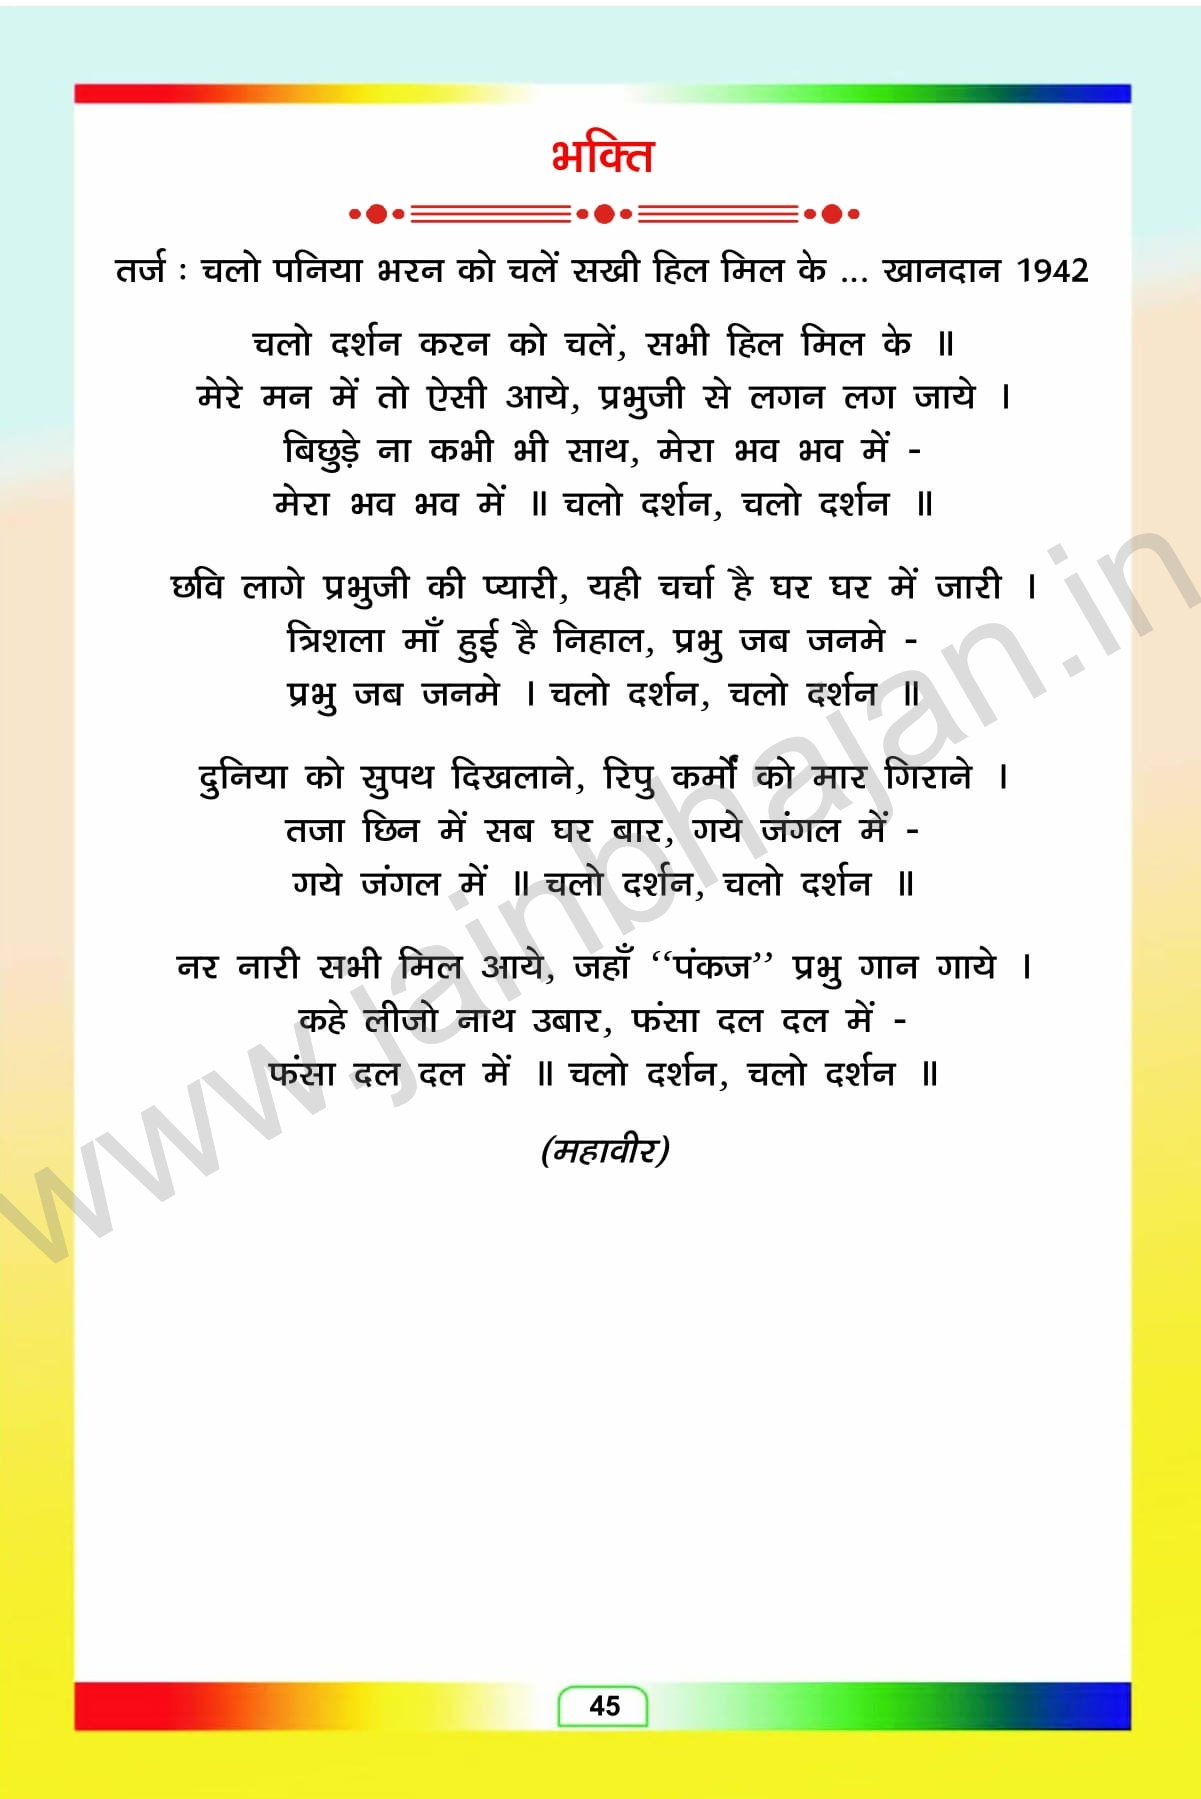 भक्ति
तर्ज : चलो पनिया भरन को चलें सखी हिल मिल के ... खानदान 1942
चलो दर्शन करन को चलें, सभी हिल मिल के ॥
मेरे मन में तो ऐसी आये, प्रभुजी से लगन लग जाये ।
बिछुड़े ना कभी भी साथ, मेरा भव भव में -
मेरा भव भव में ॥ चलो दर्शन, चलो दर्शन ॥
छवि लागे प्रभुजी की प्यारी, यही चर्चा है घर घर में जारी ।
त्रिशला माँ हुई है निहाल, प्रभु जब जनमे -
प्रभु जब जनमे । चलो दर्शन, चलो दर्शन ॥
दुनिया को सुपथ दिखलाने, रिपु कर्मों को मार गिराने ।
तजा छिन में सब घर बार, गये जंगल में -
गये जंगल में ॥ चलो दर्शन, चलो दर्शन ॥
नर नारी सभी मिल आये, जहाँ “पंकज” प्रभु गान गाये ।
कहे लीजो नाथ उबार, फंसा दल दल में -
फंसा दल दल में ॥ चलो दर्शन, चलो दर्शन ॥
(महावीर)
www.jainbhajan.in
45